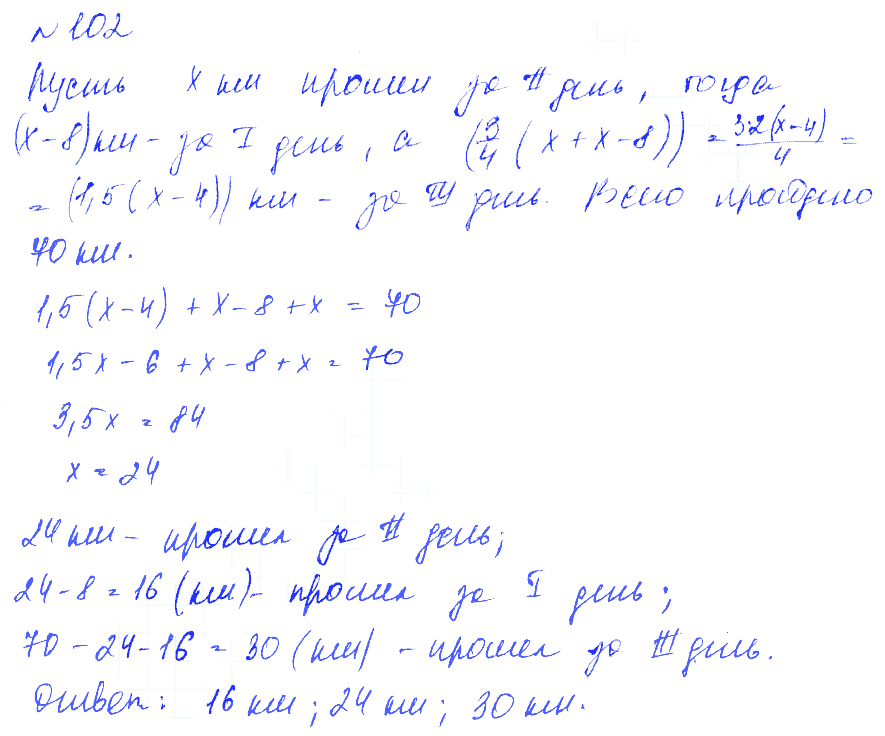 № 102
Пусть x км прошел за II день, тогда
(x-8) км - за I день, а (3/4 (x + x - 8)) = 3·2(x-4)/4 =
= (1,5(x-4)) км - за III день. Всего пройдено
70 км.
1,5(x-4) + x - 8 + x = 70
1,5x - 6 + x - 8 + x = 70
3,5x = 84
x = 24
24 км - прошел за II день;
24 - 8 = 16 (км) - прошел за I день;
70 - 24 - 16 = 30 (км) - прошел за III день.
Ответ: 16 км; 24 км; 30 км.